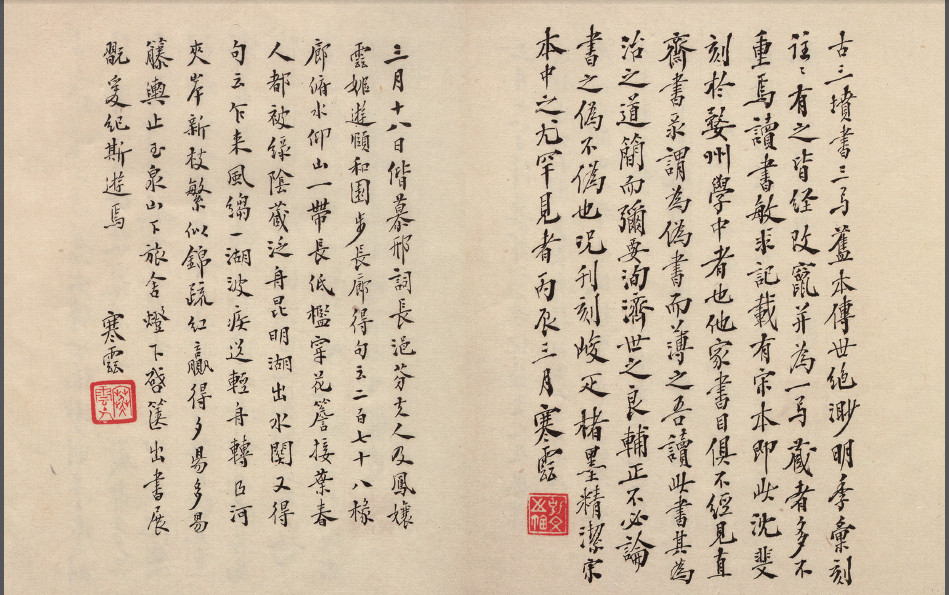 古三墳書三弓舊本傳世絕渺明季彙刻
往々有之皆經改竄并為一弓藏者多不
重焉讀書敏求記載有宋本即此沈斐
刻於婺州學中者也他家書目俱不經見直
齋書录謂為偽書而薄之吾讀此書其為
治之道簡而彌要洵濟世之良輔正不必論
書之偽不偽也況刊刻峻疋楮墨精潔宋
本中之尤罕見者丙辰三月寒雲
三月十八日偕慕邢詞長浥芬夫人及鳳孃
雲姬遊頤和園步長廊得句云二百七十八椽
廊俯水仰山一帶長低檻穿花簷接葉春
人都被綠陰藏泛舟昆明湖出水関又得
句云乍来風縐一湖波疾送輕舟轉河
夾岸新枝繁似錦疏紅贏得夕昜多易
籐輿止玉泉山下旅舍燈下啓篋出書展
翫爰紀斯遊焉 寒雲